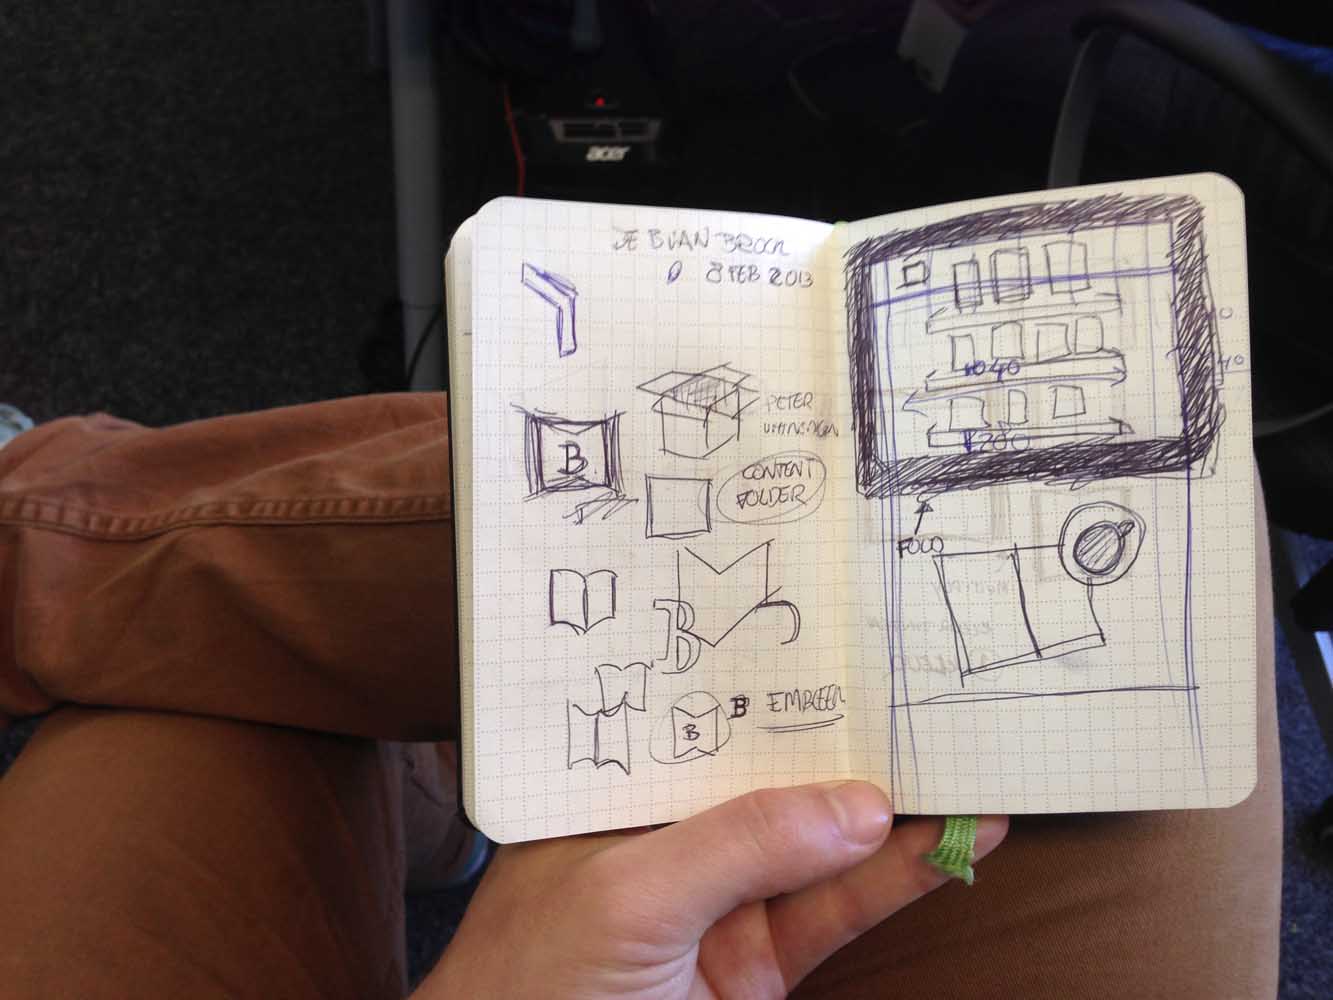 acer
DE B VAN BROCK
8 FEB 2013
B
PETER
CONTENT
FOLDER
B
B
B
EMBLEEM
40
1040
1200
FOCO